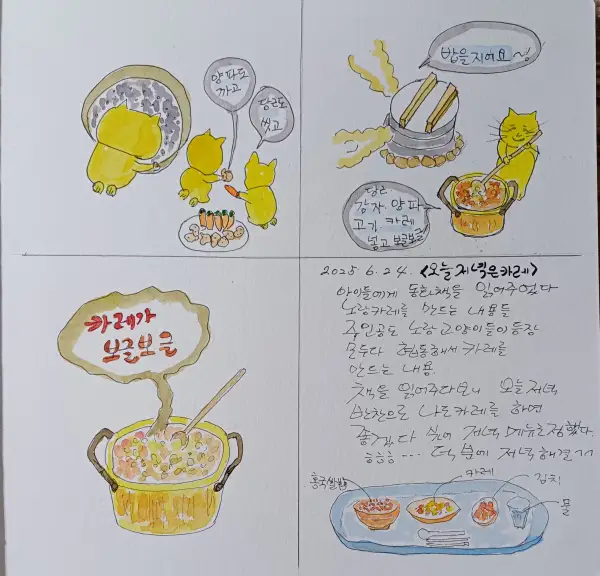 양파도
까고
당근도
씻고
밥을지어요~!
당근
감자 양파
고기 카레
넣고 보글보글
카레가
보글보글
2025. 6. 24. <오늘저녁은카레>
아이들에게 동화책을 읽어주었다
노랑카레를 만드는 내용들
주인공도 노랑고양이들이 등장
모두다 협동해서 카레를
만드는 내용.
책을 읽어주다보니 오늘저녁
반찬으로 나도카레를 하면
좋겠다 싶어 저녁메뉴로정했다.
흐흐흐... 덕분에 저녁해결기
홍국쌀밥
카레
김치
물